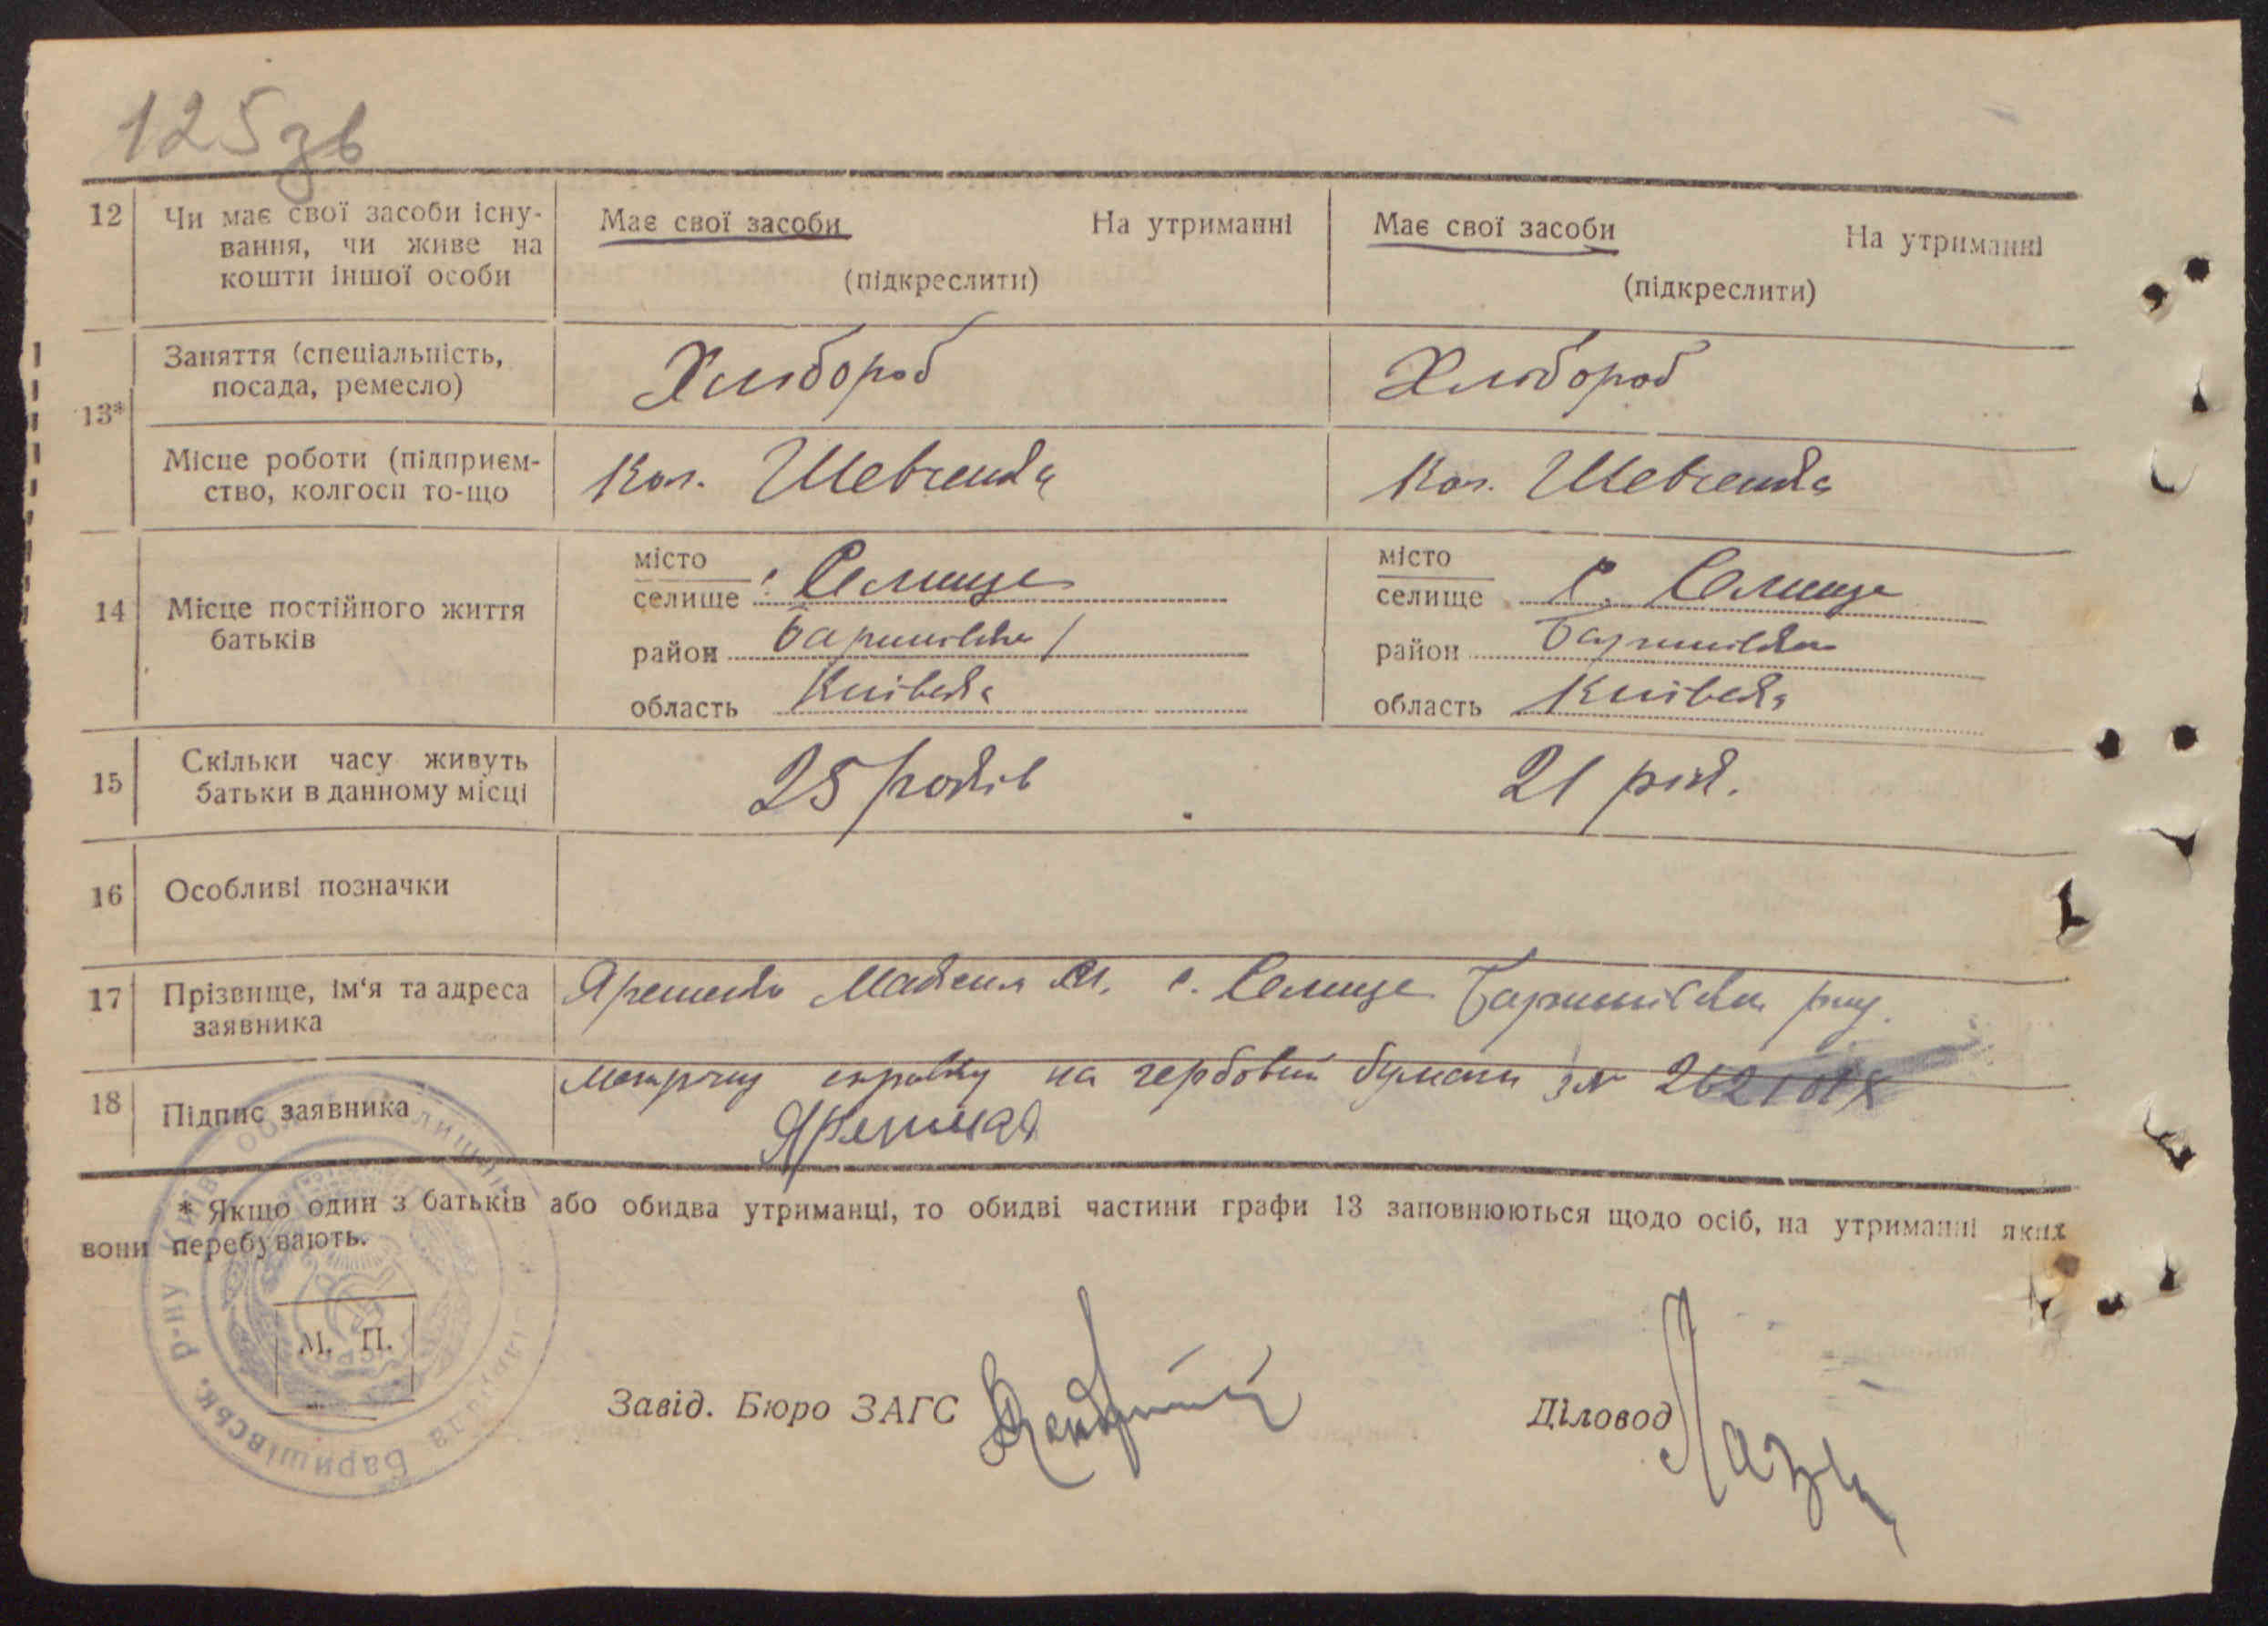 125 зв
12 Чи має свої засоби існу- Має свої засоби На утриманні Має свої засоби На утриманні
вання, чи живе на
кошти іншої особи (підкреслити) (підкреслити)
13* Заняття (спеціальність, Хлібороб Хлібороб
посада, ремесло)
Місце роботи (підприєм- Кол. Шевченка Кол. Шевченка
ство, колгосп то-що
14 Місце постійного життя батьків
місто
селище с. Селище
район Баришівськ
область Київська
місто
селище с. Селище
район Баришівськ
область Київська
15 Скільки часу живуть 25 років 21 рік.
батьки в данному місці
16 Особливі позначки
17 Прізвище, ім'я та адреса с. Селище Баришівськ
заявника
на гербовій № 
18 Підпис заявника
* Якщо один з батьків або обидва утриманці, то обидві частини графи 13 заповнюються щодо осіб, на утриманні яких
вони перебувають.
М. П.
Баришівськ. р-ну Київ. обл.
Завід. Бюро ЗАГС
Діловод